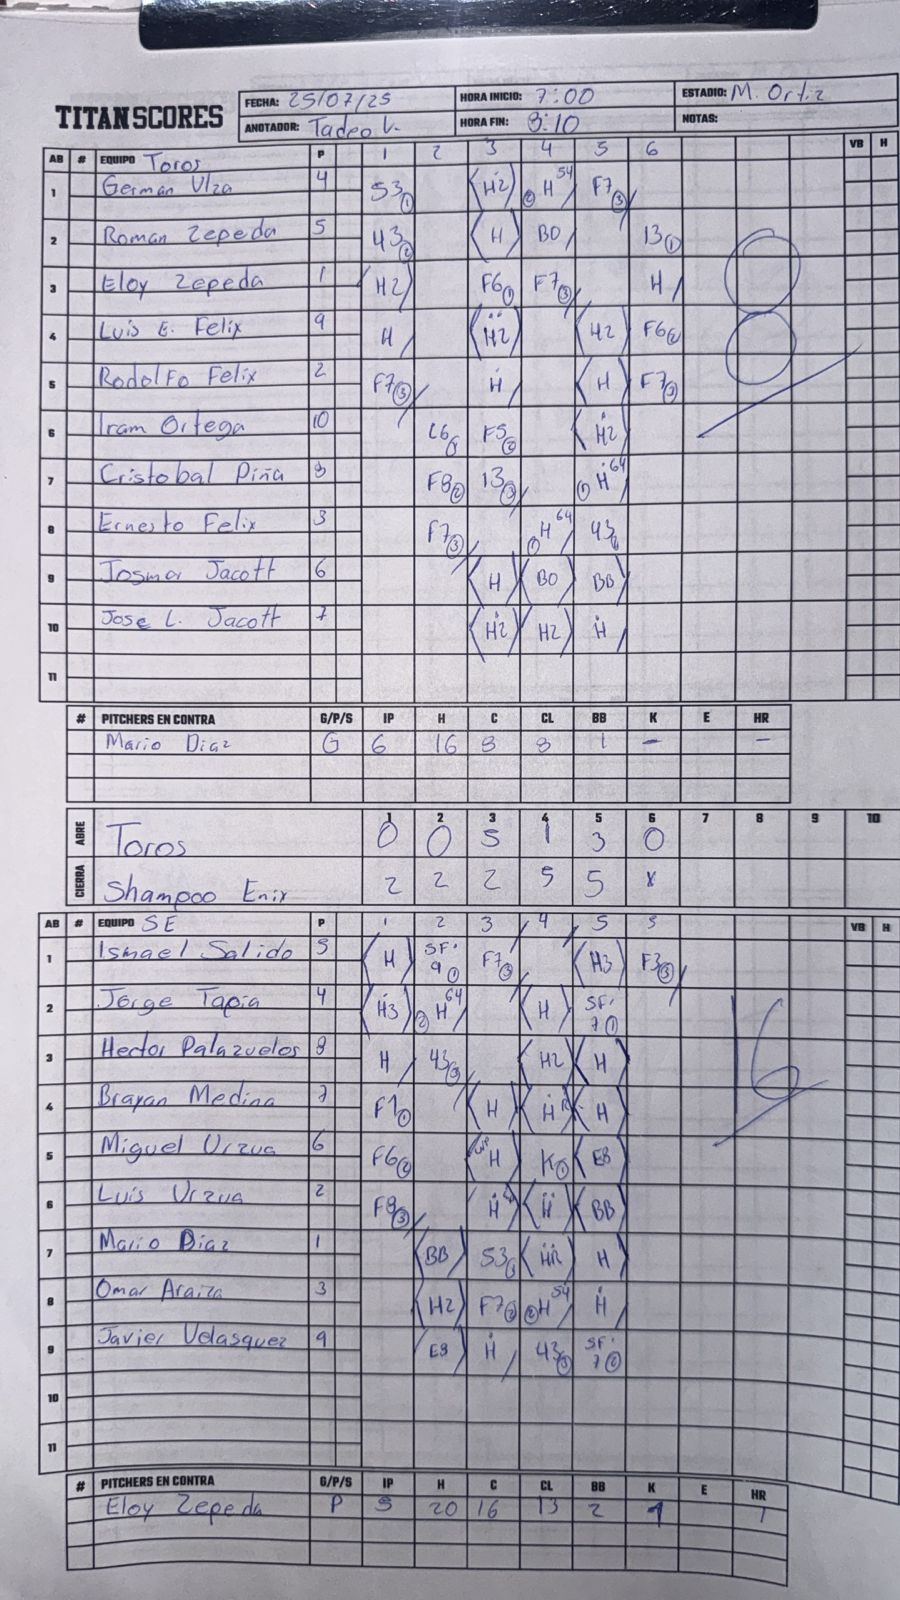 TITAN SCORES
FECHA: 25/07/25 HORA INICIO: 7:00 ESTADIO: M. Ortiz
ANOTADOR: Tadeo V. HORA FIN: 8:10 NOTAS:
AB # EQUIPO Toros P 1 2 3 4 5 6 VB H
1 German Ulza 4 53① ⟨H2⟩ ②H54 F7③
2 Roman Zepeda 5 43② ⟨H⟩ BO 13①
3 Eloy Zepeda 1 H2⟩ F6① F7③ H
4 Luis E. Felix 9 H ⟨H2⟩ ⟨H2⟩ F6②
5 Rodolfo Felix 2 F7③ H ⟨H⟩ F7③
6 Iram Ortega 10 L6① F5② ⟨H2⟩
7 Cristobal Piña 8 F8② 13③ ①H64
8 Ernesto Felix 3 F7③ ①H64 43
9 Josmar Jacott 6 ⟨H⟩ ⟨BO⟩ BB⟩
10 Jose L. Jacott 7 ⟨H2⟩ H2⟩ H
11
8
# PITCHERS EN CONTRA G/P/S IP H C CL BB K E HR
Mario Diaz G 6 16 8 8 1 – –
1 2 3 4 5 6 7 8 9 10
ABRE Toros 0 0 5 1 3 0
CIERRA Shampoo Enix 2 2 2 5 5 x
AB # EQUIPO SE P 1 2 3 4 5 5 VB H
1 Ismael Salido 5 ⟨H⟩ SF' 9① F7③ ⟨H3⟩ F3③
2 Jorge Tapia 4 ⟨H3⟩ ②H64 ⟨H⟩ SF' 7①
3 Hector Palazuelos 8 H 43③ ⟨H2⟩ ⟨H⟩
4 Brayan Medina 7 F1① ⟨H⟩ ⟨H⟩ ⟨H⟩
5 Miguel Urzua 6 F6② ⟨H⟩ K① ⟨E8⟩
6 Luis Urzua 2 F8③ H ⟨H⟩ ⟨BB⟩
7 Mario Diaz 1 ⟨BB⟩ 53① ⟨HR⟩ H⟩
8 Omar Araiza 3 ⟨H2⟩ F7② ②H54 H
9 Javier Velasquez 9 E8⟩ H 43③ SF' 7②
10
11
16
# PITCHERS EN CONTRA G/P/S IP H C CL BB K E HR
Eloy Zepeda P 5 20 16 13 2 1 1